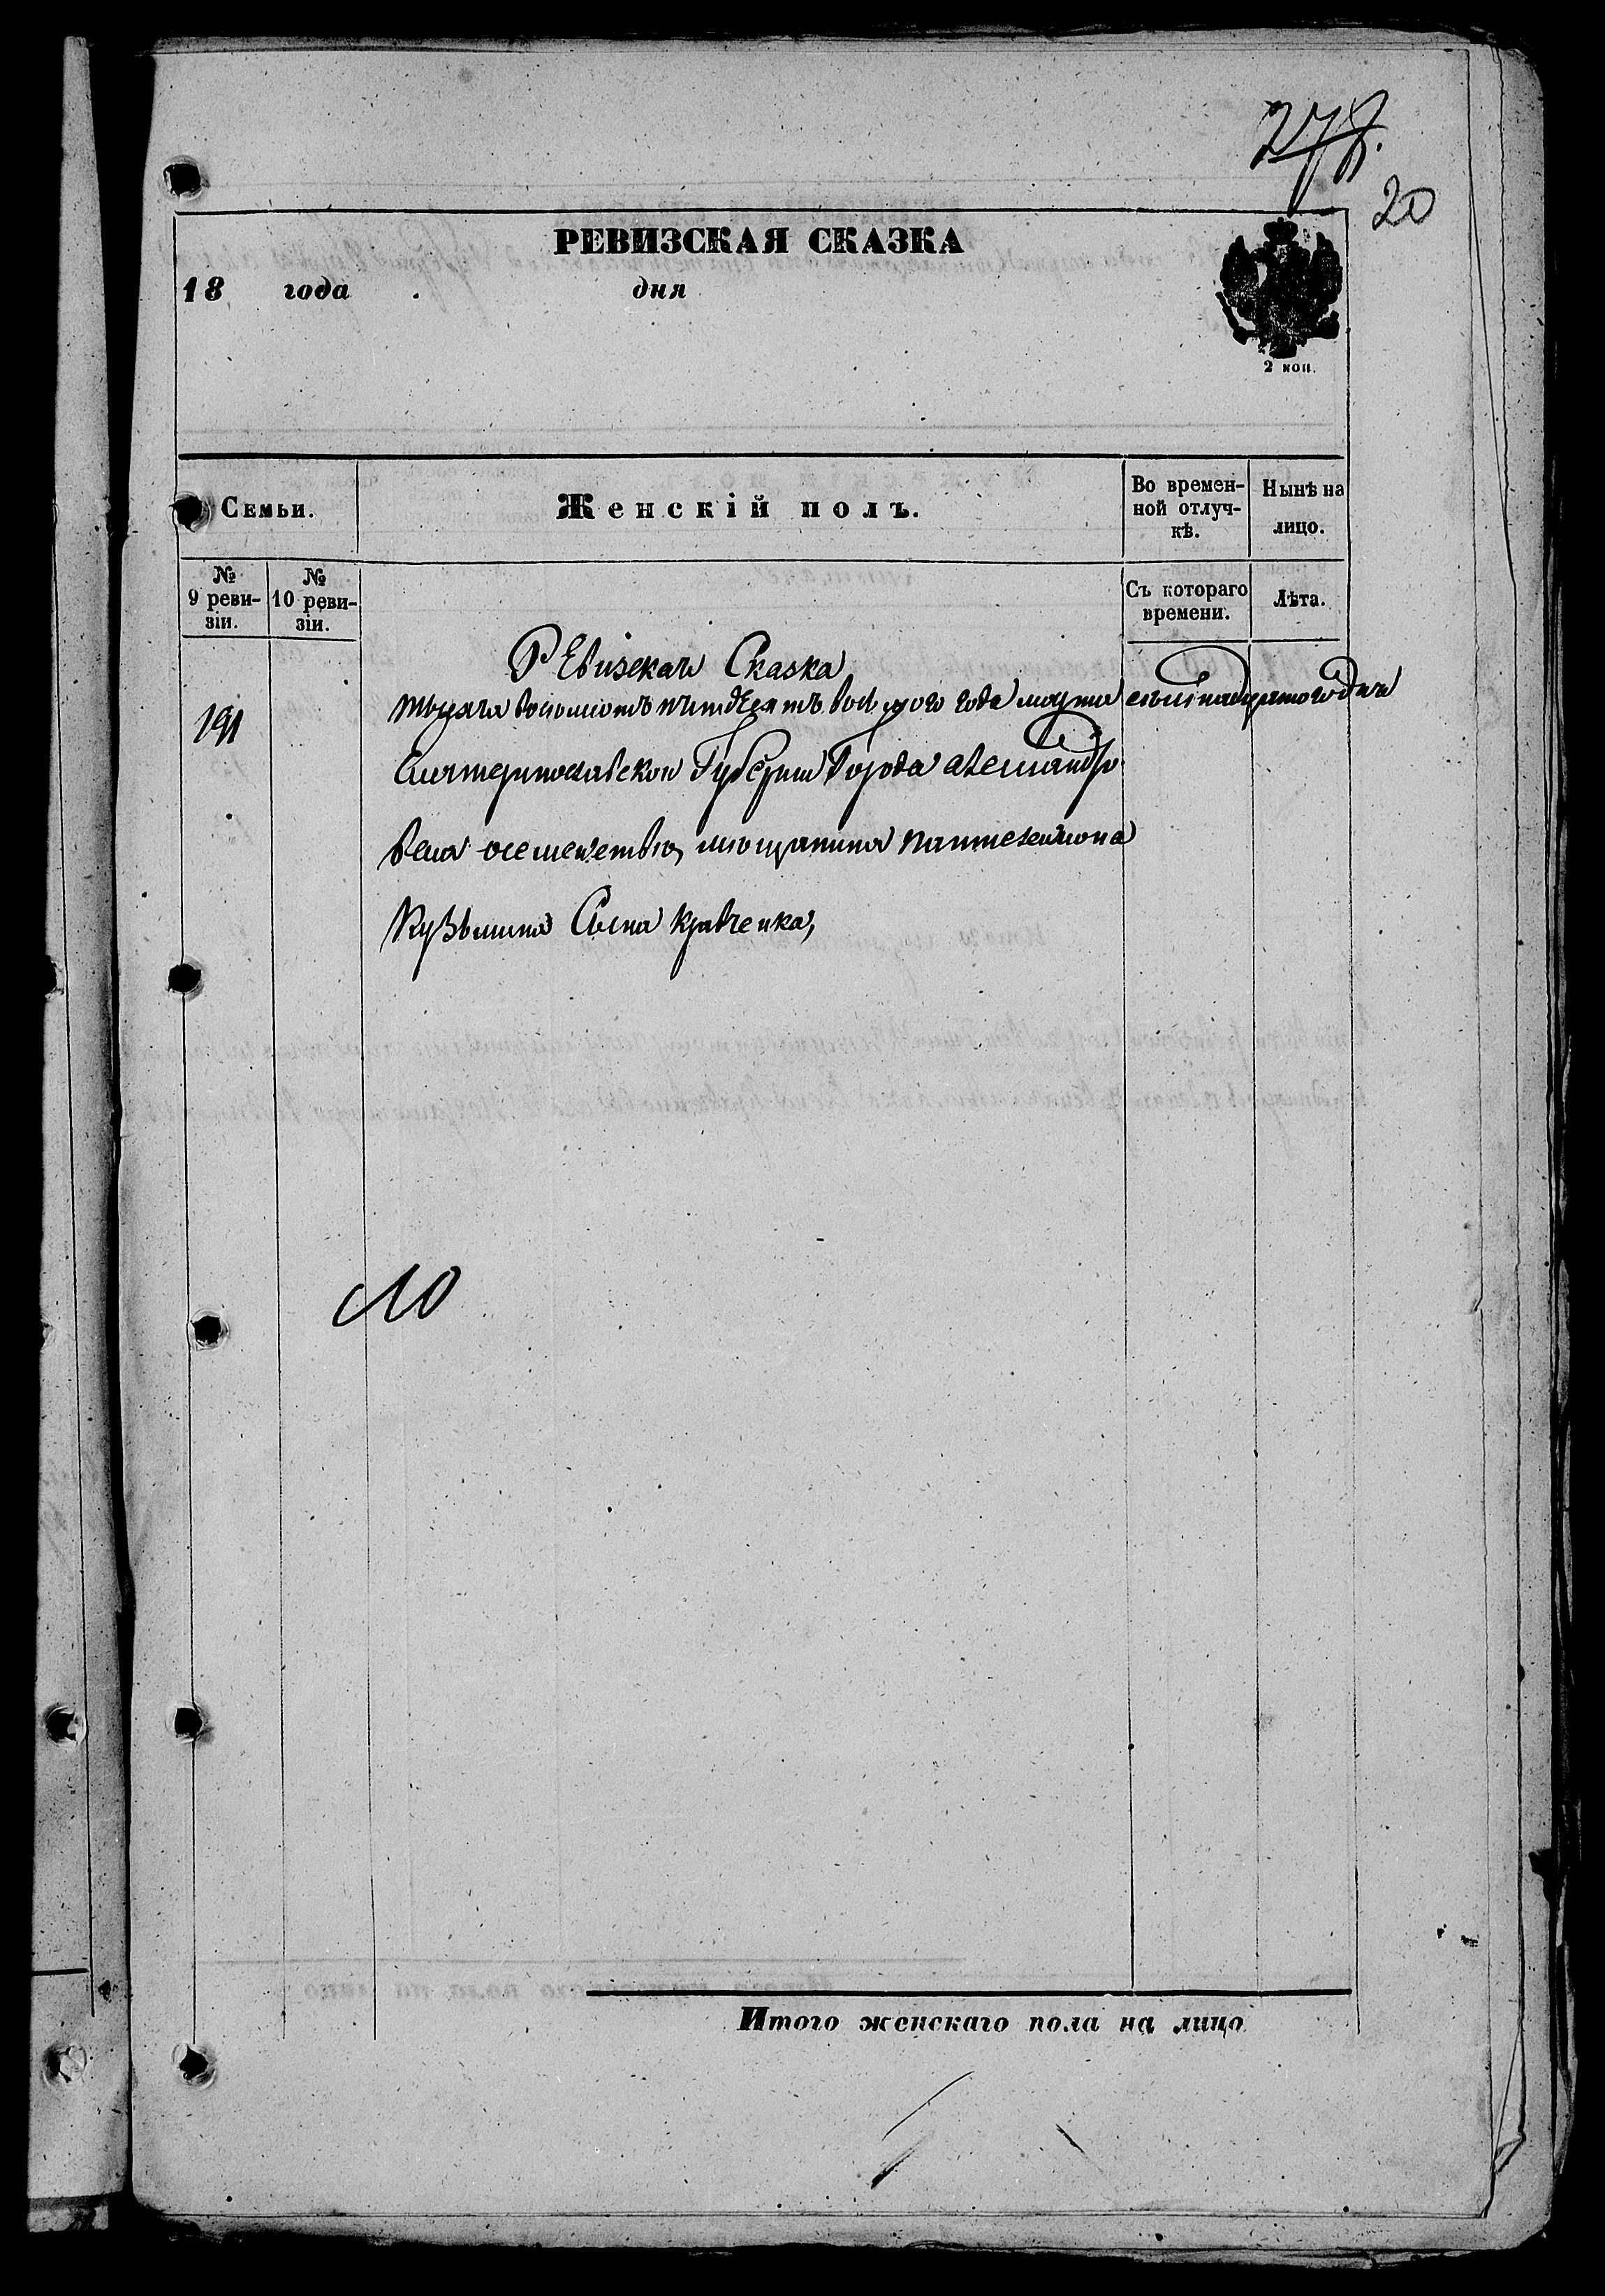 278.
20
РЕВИЗСКАЯ СКАЗКА
18 года . дня
2 коп.
Семьи.
Женскій полъ.
Во времен-
ной отлуч-
кѣ.
Нынѣ на
лицо.
№
9 реви-
зіи.
№
10 реви-
зіи.
Съ котораго
времени.
Лѣта.
Ревизская Сказка
191
тысяча восомсотъ пятдесятъ восмого года марта дня
Екатеринославской Губерніи Города Александро
вска осемействѣ мющанина Пантелеимона
Кузьмина Сына Кравченка,
10
Итого женскаго пола на лицо